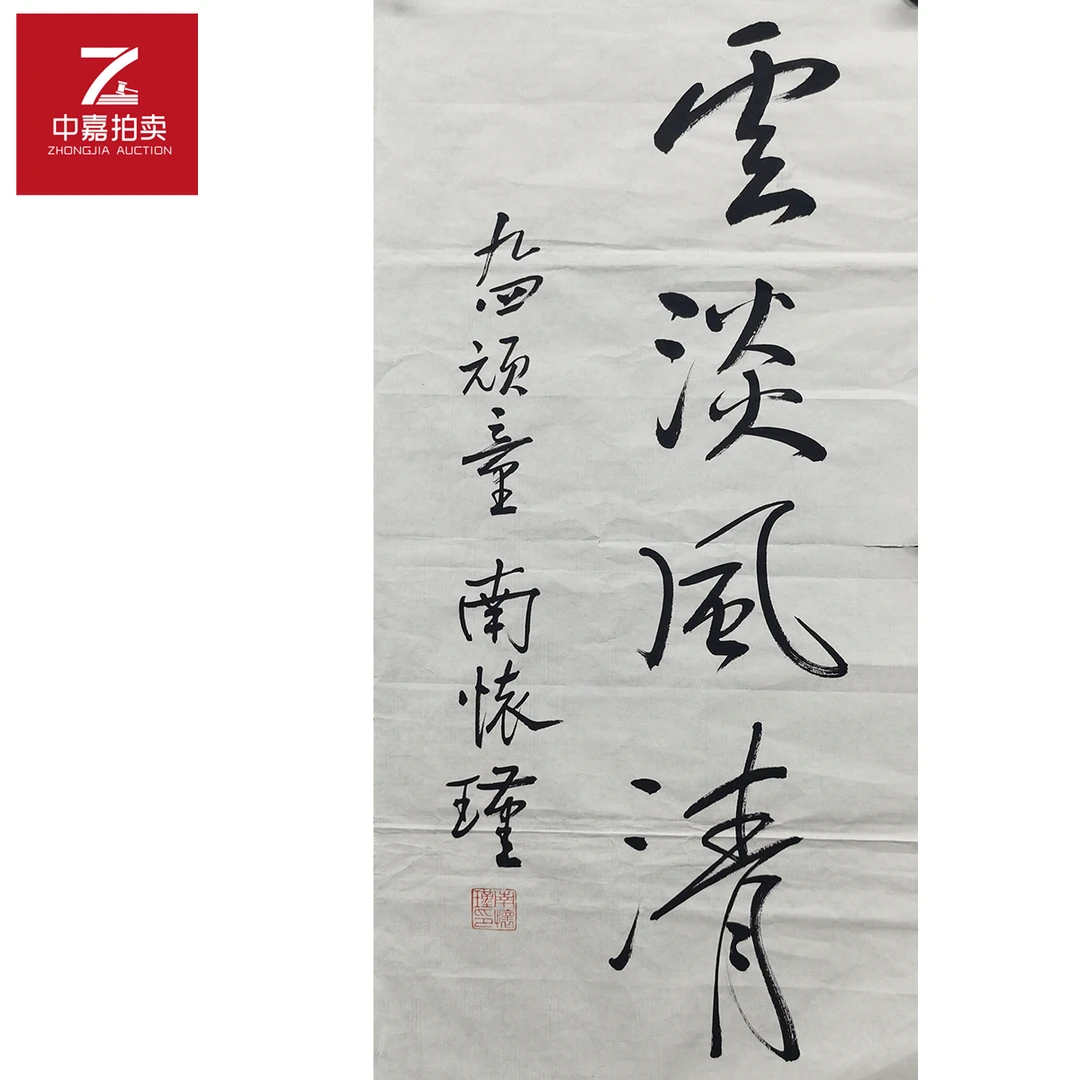 中嘉拍卖
ZHONGJIA AUCTION
雲淡風清
九四頑童 南懷瑾
南懷瑾印